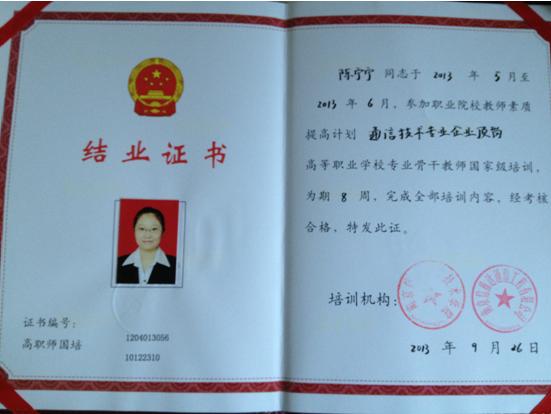 结业证书
证书编号：
1204013056
高职师国培
10122310
陈宁宁 同志于 2013 年 5月至
2013 年 6月，参加职业院校教师素质
提高计划 通信技术专业企业顶岗
高等职业学校专业骨干教师国家级培训，
为期 8 周，完成全部培训内容。经考核
合格，特发此证。
培训机构：
2013 年 9 月 26 日